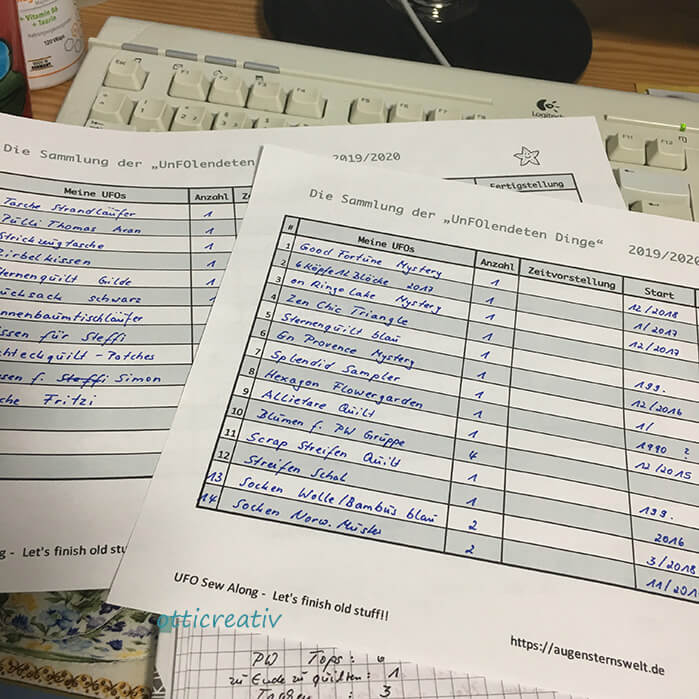 + Vitamin B6
+ Taurin
Logitech
Die Sammlung der „UnFOlendeten 2019/2020
Meine UFOs Anzahl Fertigstellung
Tasche Strandläufer 1
Pulli Thomas Aran 1
Strickzeugtasche 1
Zirbelkissen 1
Sternenquilt Gilde 1
Rucksack schwarz 1
Tannenbaumtischläufer
Kissen für Steffi
Achteckquilt - Patches
Kissen f. Steffi Simon
Fritzi
Let's finish old stu
Die Sammlung der „UnFOlendeten Dinge“ 2019/2020
# Meine UFOs Anzahl Zeitvorstellung Start
1 Good Fortune Mystery 1 12/2018
2 6Köpfe12Blöcke 2017 1 1/2017
3 on Ringo Lake Mystery 1 12/2017
4 Zen Chic Triangle 1
5 Sternenquilt blau 1 199.
6 En Provence Mystery 1 12/2016
7 Splendid Sampler 1 1/
8 Hexagon Flowergarden 1 1990 ?
9 Allietare Quilt 1 12/2015
10 Blumen f. PW Gruppe 4
11 Scrap Streifen Quilt 1 199.
12 Streifen Schal 1 2016
13 Socken Wolle/Bambus blau 2 3/2018
14 Socken Norw. Muster 2 11/201
UFO Sew Along - Let's finish old stuff!!
https://augensternswelt.de
otticreativ
PW Tops: 6
zu Ende zu quilten: 1
Taschen 3